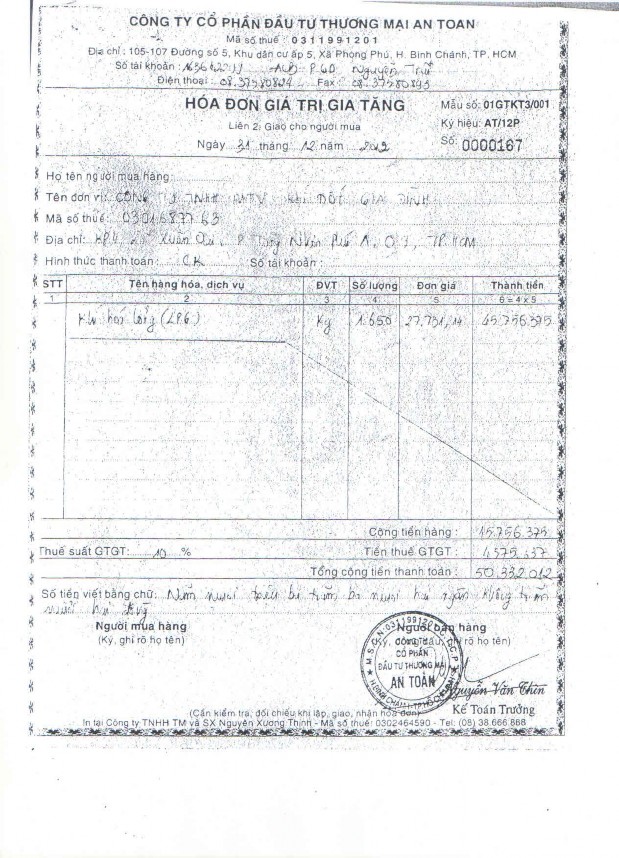 CÔNG TY CỔ PHẦN ĐẦU TƯ THƯƠNG MẠI AN TOAN
Mã số thuế : 0311991201
Địa chỉ : 105-107 Đường số 5, Khu dân cư ấp 5, Xã Phong Phú, H. Bình Chánh, TP. HCM
Số tài khoản : ACB PGD Nguyễn Trãi
Điện thoại : 08.37580844 Fax : 08.37580845
HÓA ĐƠN GIÁ TRỊ GIA TĂNG
Mẫu số: 01GTKT3/001
Liên 2: Giao cho người mua
Ký hiệu: AT/12P
Ngày 31 tháng 12 năm 2012
Số: 0000167
Họ tên người mua hàng:
Tên đơn vị: CÔNG TY TNHH MTV KHÍ ĐỐT GIA ĐÌNH
Mã số thuế: 0301687763
Địa chỉ: Xuân Oai, P. Tăng Nhơn Phú A, Q9, TP.HCM
Hình thức thanh toán : CK Số tài khoản :
STT Tên hàng hóa, dịch vụ ĐVT Số lượng Đơn giá Thành tiền
1 2 3 4 5 6 = 4 x 5
Khí hoá lỏng (LPG) Kg 1.650 27.731,14 45.756.375
Cộng tiền hàng : 45.756.375
Thuế suất GTGT: 10 % Tiền thuế GTGT : 4.575.637
Tổng cộng tiền thanh toán : 50.332.012
Số tiền viết bằng chữ: Năm mươi triệu ba trăm ba mươi hai ngàn không trăm
mười hai đồng
Người mua hàng Người bán hàng
(Ký, ghi rõ họ tên) (Ký, đóng dấu, ghi rõ họ tên)
CÔNG TY
CỔ PHẦN
ĐẦU TƯ THƯƠNG MẠI
AN TOÀN
Nguyễn Văn Thìn
Kế Toán Trưởng
(Cần kiểm tra, đối chiếu khi lập, giao, nhận hóa đơn)
In tại Công ty TNHH TM và SX Nguyễn Xương Thịnh - Mã số thuế: 0302464590 - Tel: (08) 38.666.868